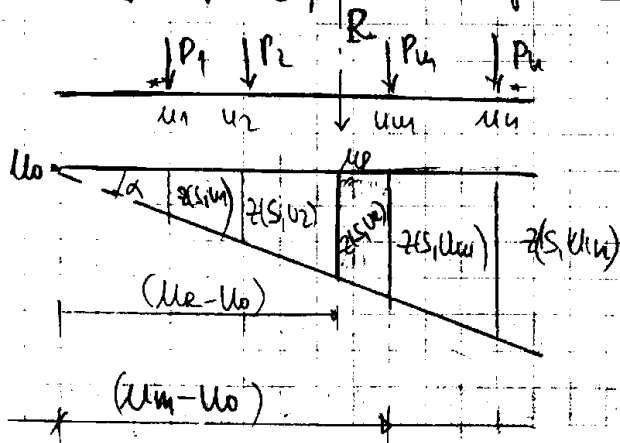 R
P1 P2 Pm Pn
u1 u2 um un
u0 uR
α z(s,u1) z(s,u2) z(s,uR) z(s,um) z(s,un)
(uR-u0)
(um-u0)